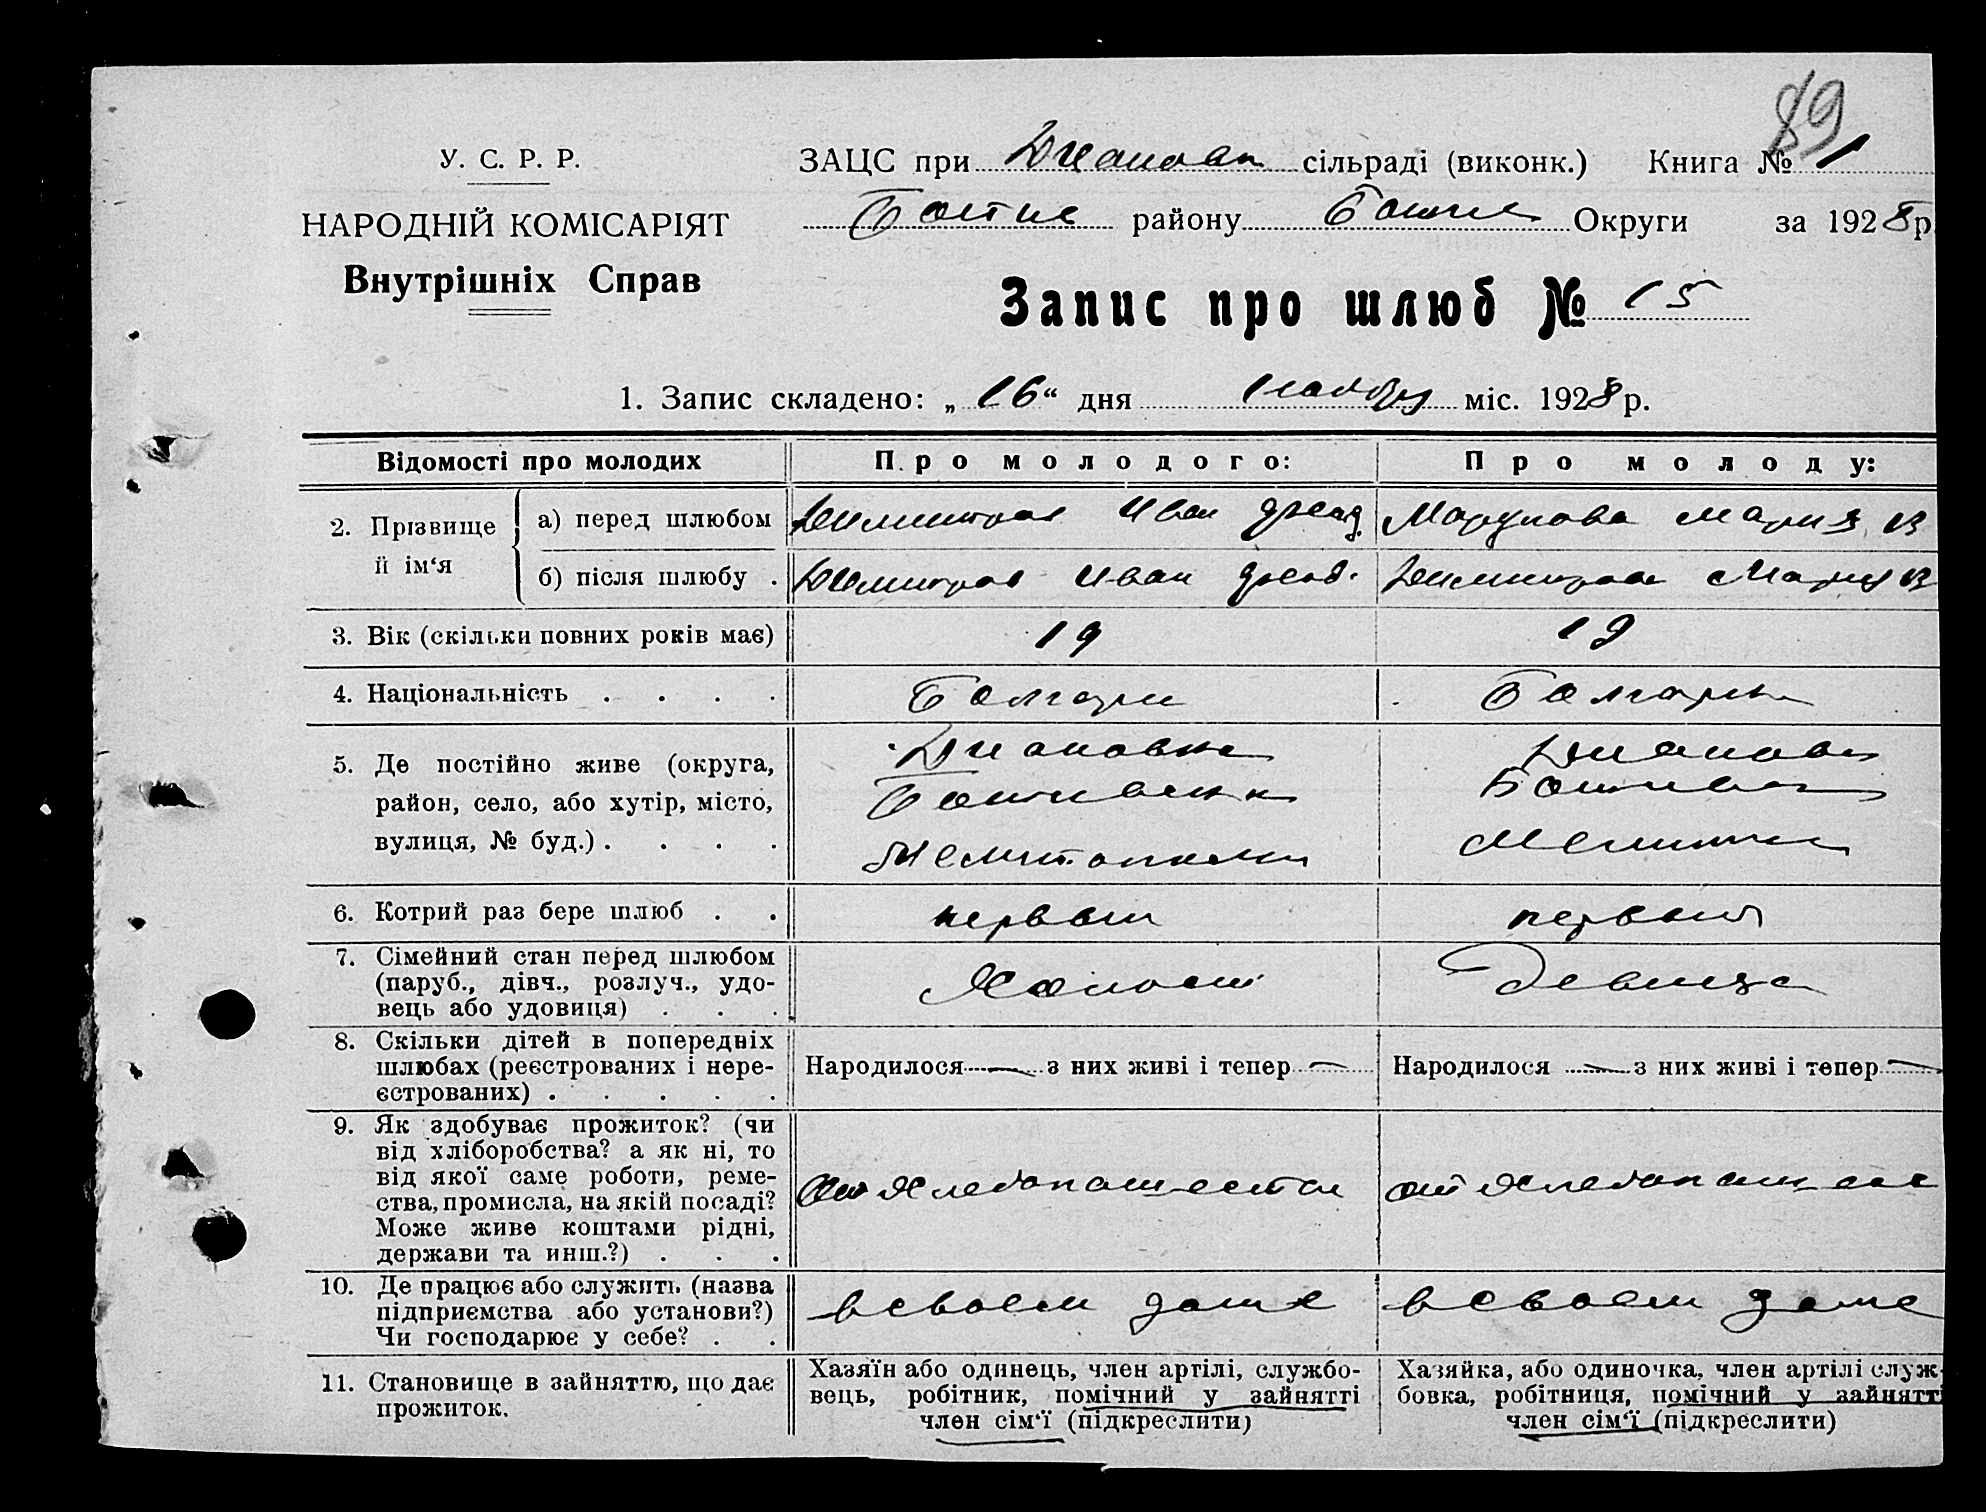 89
У. С. Р. Р.
НАРОДНІЙ КОМІСАРІЯТ
Внутрішніх Справ
ЗАЦС при Диановк сільраді (виконк.) Книга № 1
району Округи за 1928 р.
Запис про шлюб № 15
1. Запис складено: „16“ дня ноября міс. 1928 р.
Відомості про молодих
Про молодого:
Про молоду:
2. Прізвище й ім‘я
а) перед шлюбом
Димитров Иван
Марунова Мария В
б) після шлюбу .
Димитров Иван
Димитрова Мария В
3. Вік (скільки повних років має)
19
19
4. Національність . . . .
Болгарин
Болгарка
5. Де постійно живе (округа,
район, село, або хутір, місто,
вулиця, № буд.) . . . .
Диановка
Ботиевски
Мелитопольск
Дианов
Ботиев
6. Котрий раз бере шлюб . .
первый
первый
7. Сімейний стан перед шлюбом
(паруб., дівч., розлуч., удо-
вець або удовиця) . . .
Холост
Девица
8. Скільки дітей в попередніх
шлюбах (реєстрованих і нере-
єстрованих) . . . . .
Народилося — з них живі і тепер —
Народилося — з них живі і тепер —
9. Як здобуває прожиток? (чи
від хліборобства? а як ні, то
від якої саме роботи, реме-
ства, промисла, на якій посаді?
Може живе коштами рідні,
держави та инш.?) . . .
от Хлебопашества
от Хлебопаш
10. Де працює або служить (назва
підприємства або установи?)
Чи господарює у себе? . .
в своем доме
в своем доме
11. Становище в зайняттю, що дає
прожиток.
Хазяїн або одинець, член артілі, службо-
вець, робітник, помічний у зайнятті
член сім‘ї (підкреслити)
Хазяйка, або одиночка, член артілі служ-
бовка, робітниця, помічний у зайнятті
член сім‘ї (підкреслити)